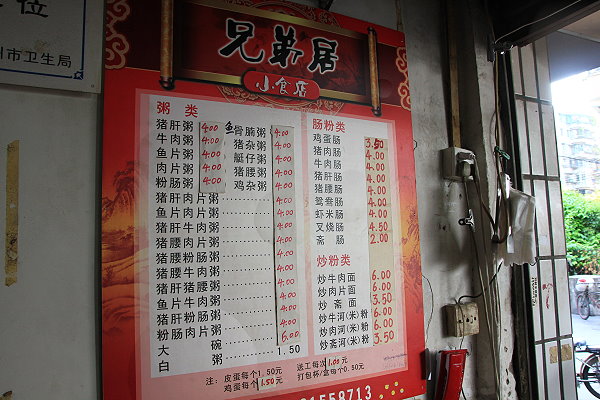 位
州市卫生局
兄弟居
小食店
粥类
猪肝粥 4.00 鱼骨腩粥 4.00
牛肉粥 4.00 猪杂粥 4.00
鱼片粥 4.00 艇仔粥 4.00
肉片粥 4.00 猪腰粥 4.00
粉肠粥 4.00 鸡杂粥 4.00
猪肝肉片粥 4.00
鱼片肉片粥 4.00
猪肝牛肉粥 4.00
猪腰肉片粥 4.00
猪腰粉肠粥 4.00
猪腰牛肉粥 4.00
猪肝猪腰粥 4.00
鱼片牛肉粥 4.00
粉肠肉片粥 4.00
大碗 6.00
白粥 1.50
肠粉类
鸡蛋肠 3.50
猪肉肠 4.00
牛肉肠 4.00
猪肝肠 4.00
猪腰肠 4.00
鸳鸯肠 4.00
虾米肠 4.00
叉烧肠 4.00
斋肠 2.00
炒粉类
炒牛肉面 6.00
炒肉片面 6.00
炒斋面 3.50
炒牛河(米)粉 6.00
炒肉河(米)粉 6.00
炒斋河(米)粉 3.50
注: 皮蛋每个1.50元 送工每次1.00元
鸡蛋每个1.50元 打包杯/盒每个0.50元
1558713